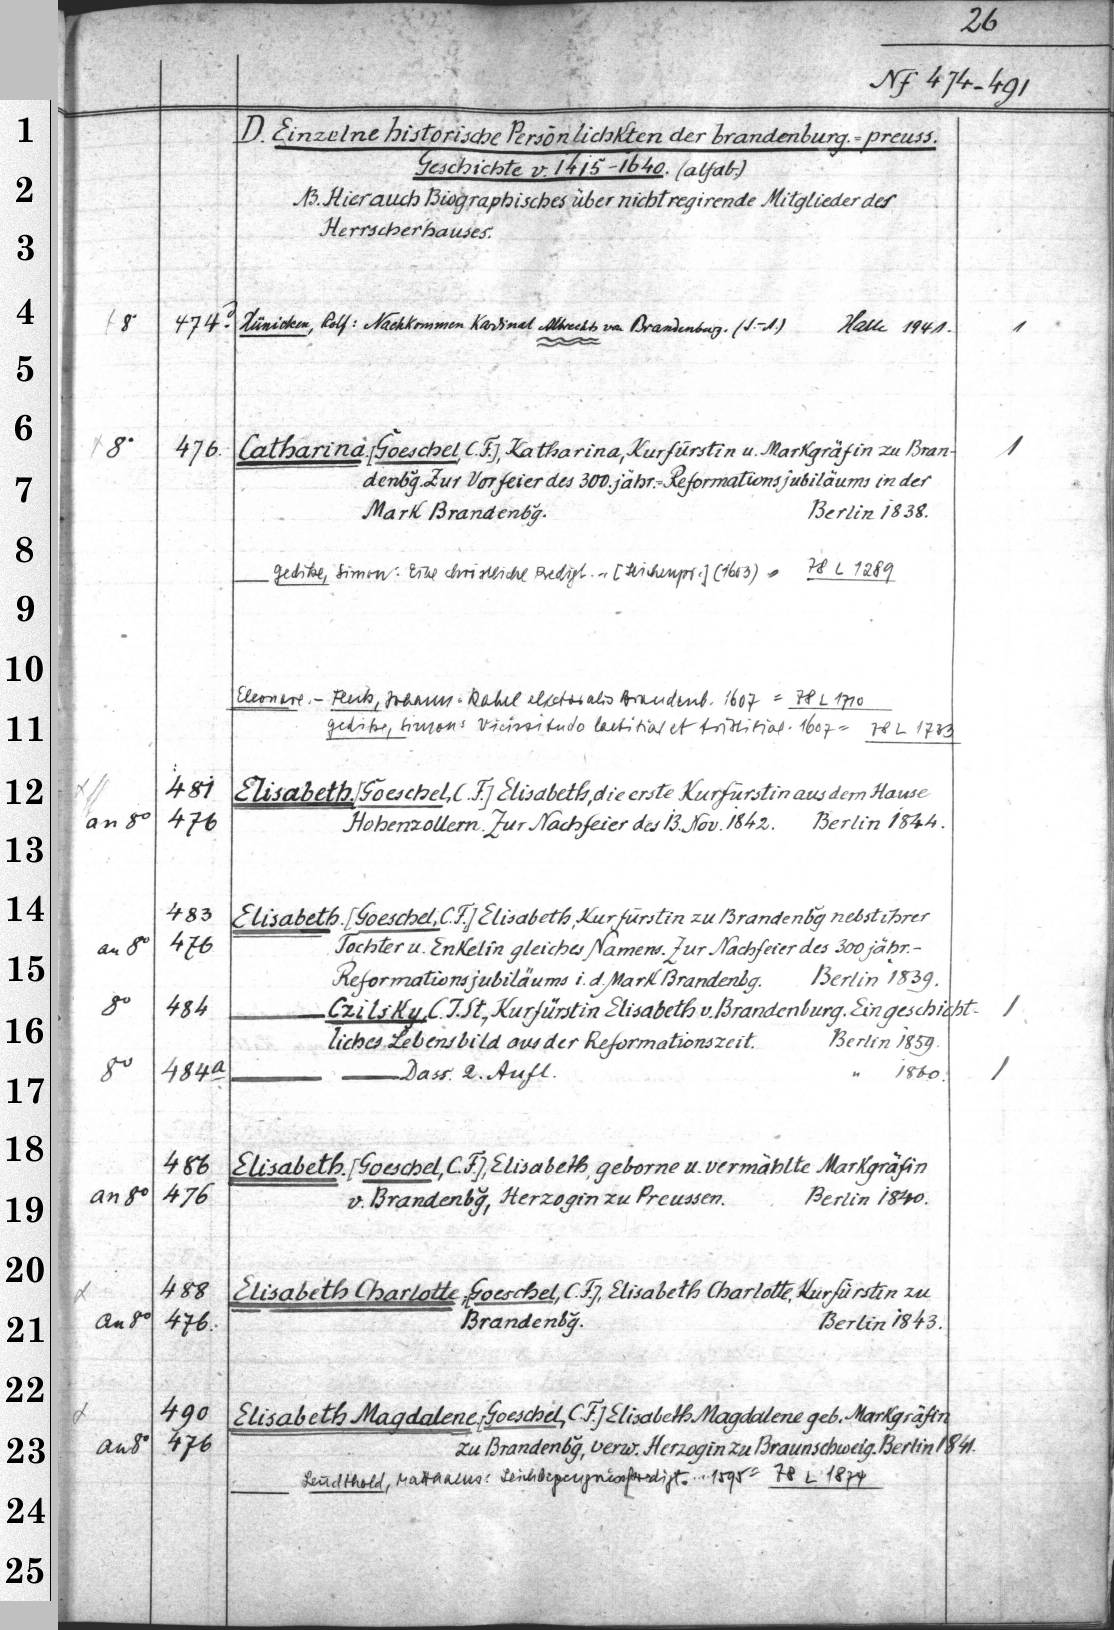 26
Nf 474-491
1
D. Einzelne historische Persönlichkten der brandenburg.=preuss.
Geschichte v. 1415-1640. (alfab.)
2
NB. Hier auch Biographisches über nicht regirende Mitglieder des
3
Herrscherhauses.
4
8° 474? Hünicken, Rolf: Nachkommen Kardinal Albrechts von Brandenburg. (S.-A.) Halle 1941. 1
5
6
8° 476. Catharina. [Goeschel, C.F.], Katharina, Kurfürstin u. Markgräfin zu Bran- 1
7
denbg̃. Zur Vorfeier des 300.jähr.=Reformationsjubiläums in der
Mark Brandenbg̃. Berlin 1838.
8
Gedike, Simon: Eine christliche Predigt. [Leichenpr.] (1603) = 78 L 1289
9
10
Eleonore. - Fleck, Johann: electoralis Brandenb. 1607 = 78 L 1710
11
Gedike, Simon: Vicissitudo laetitiae et tristitiae. 1607 = 78 L 1733
12
481 Elisabeth. [Goeschel, C.F.] Elisabeth, die erste Kurfürstin aus dem Hause
an 8° 476 Hohenzollern. Zur Nachfeier des 13. Nov. 1842. Berlin 1844.
13
14
483 Elisabeth. [Goeschel, C.F.] Elisabeth, Kurfürstin zu Brandenbg̃ nebst ihrer
an 8° 476 Tochter u. Enkelin gleiches Namens. Zur Nachfeier des 300 jähr.-
15
Reformationsjubiläums i. d. Mark Brandenbg. Berlin 1839.
8° 484 Czilsky, C. J. St., Kurfürstin Elisabeth v. Brandenburg. Ein geschicht- 1
16
liches Lebensbild aus der Reformationszeit. Berlin 1859.
8° 484a Dass. 2. Aufl. " 1860. 1
17
18
486 Elisabeth. [Goeschel, C.F.], Elisabeth, geborne u. vermählte Markgräfin
19
an 8° 476 v. Brandenbg̃, Herzogin zu Preussen. Berlin 1840.
20
488 Elisabeth Charlotte, [Goeschel, C.F.], Elisabeth Charlotte, Kurfürstin zu
21
an 8° 476. Brandenbg̃. Berlin 1843.
22
490 Elisabeth Magdalene, [Goeschel, C.F.] Elisabeth Magdalene geb. Markgräfin
23
an 8° 476 zu Brandenbg̃, verw. Herzogin zu Braunschweig. Berlin 1841.
Leudthold, Matthaeus: 1595 = 78 L 1874
24
25